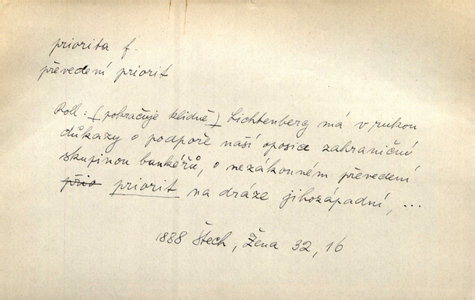 priorita f.
převedení priorit
Roll: (pokračuje klidně) Lichtenberg má v rukou
důkazy o podpoře naší oposice zahraniční
skupinou bankéřů, o nezákonném převedení
prio priorit na dráze jihozápadní, ...
1888 Štech, Žena 32, 16